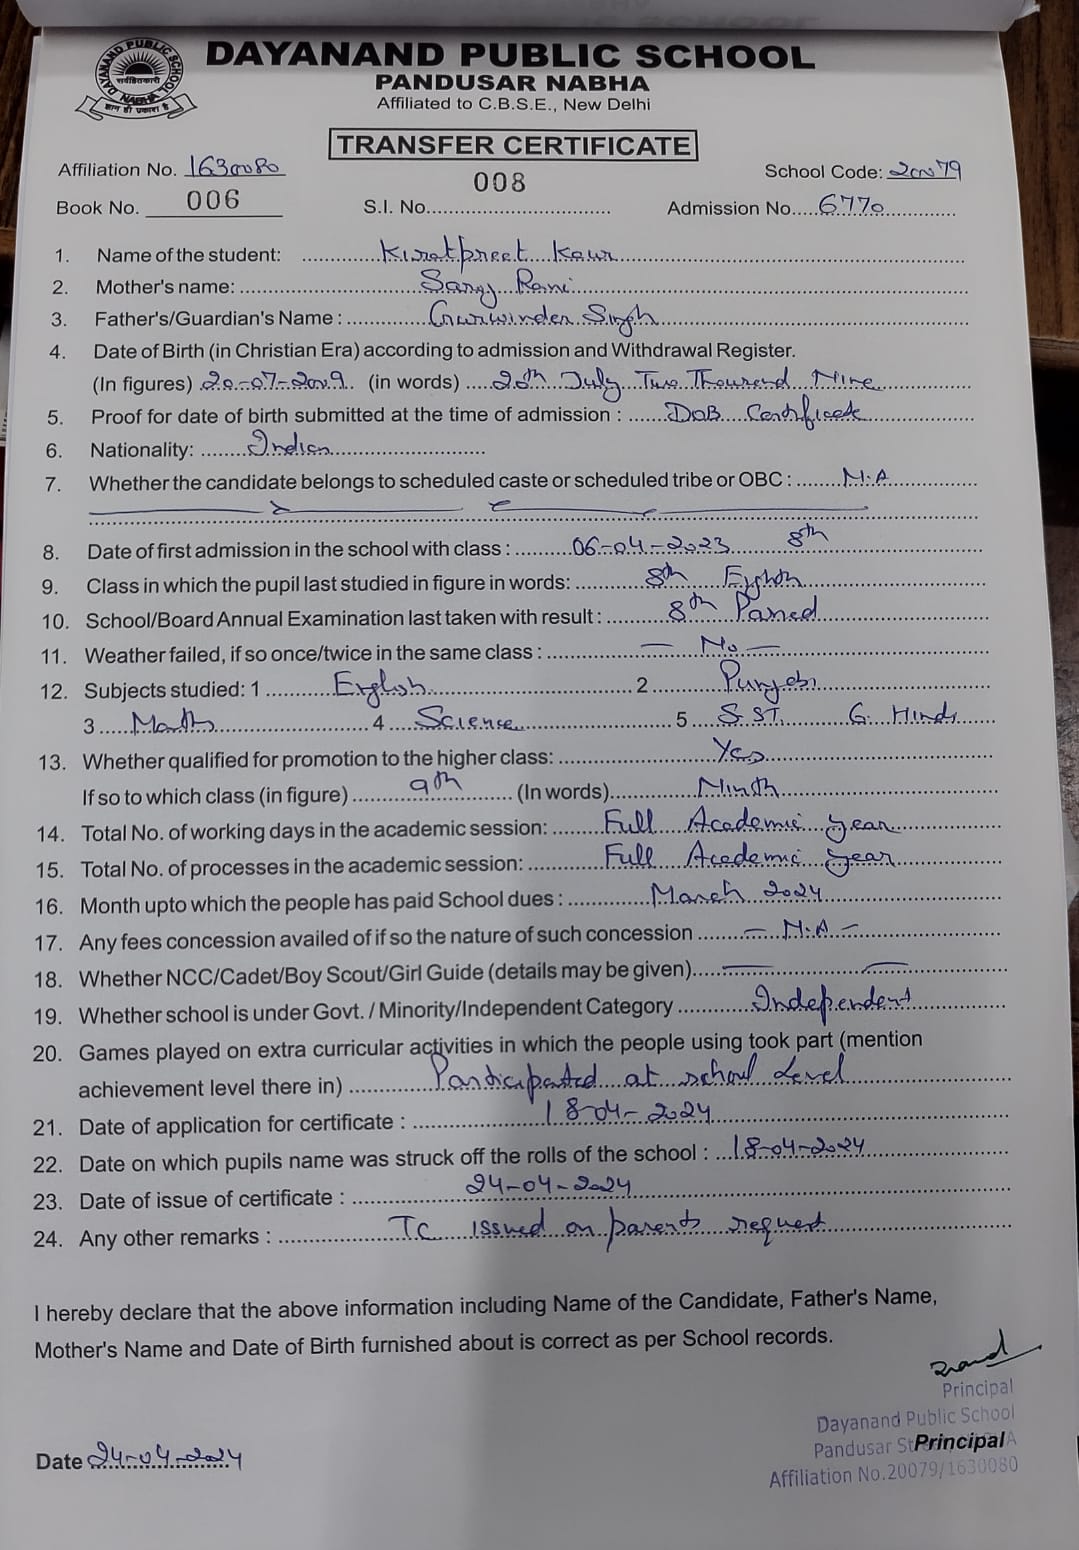 DAYANAND PUBLIC SCHOOL NABHA
सर्वहितकारी
ज्ञान ही प्रकाश है
DAYANAND PUBLIC SCHOOL
PANDUSAR NABHA
Affiliated to C.B.S.E., New Delhi
TRANSFER CERTIFICATE
Affiliation No. 1630080
School Code: 20079
008
Book No. 006 S.I. No. Admission No. 6770
1. Name of the student: Kiratpreet Kaur
2. Mother's name: Saroj Rani
3. Father's/Guardian's Name : Gurwinder Singh
4. Date of Birth (in Christian Era) according to admission and Withdrawal Register.
(In figures) 20-07-2009 (in words) 20th July Two Thousand Nine
5. Proof for date of birth submitted at the time of admission : DOB Certificate
6. Nationality: Indian
7. Whether the candidate belongs to scheduled caste or scheduled tribe or OBC : N.A
8. Date of first admission in the school with class : 06-04-2023 8th
9. Class in which the pupil last studied in figure in words: 8th Eighth
10. School/Board Annual Examination last taken with result : 8th Passed
11. Weather failed, if so once/twice in the same class : — No —
12. Subjects studied: 1 English 2 Punjabi
3 Math 4 Science 5 S.ST. 6. Hindi
13. Whether qualified for promotion to the higher class: Yes
If so to which class (in figure) 9th (In words) Ninth
14. Total No. of working days in the academic session: Full Academic year
15. Total No. of processes in the academic session: Full Academic year
16. Month upto which the people has paid School dues : March 2024
17. Any fees concession availed of if so the nature of such concession — N.A —
18. Whether NCC/Cadet/Boy Scout/Girl Guide (details may be given) — —
19. Whether school is under Govt. / Minority/Independent Category Independent
20. Games played on extra curricular activities in which the people using took part (mention
achievement level there in) Participated at school Level
21. Date of application for certificate : 18-04-2024
22. Date on which pupils name was struck off the rolls of the school : 18-04-2024
23. Date of issue of certificate : 24-04-2024
24. Any other remarks : TC issued on parents request
I hereby declare that the above information including Name of the Candidate, Father's Name,
Mother's Name and Date of Birth furnished about is correct as per School records.
Principal
Dayanand Public School
Pandusar
Principal
Affiliation No.20079/1630080
Date 24-04-2024